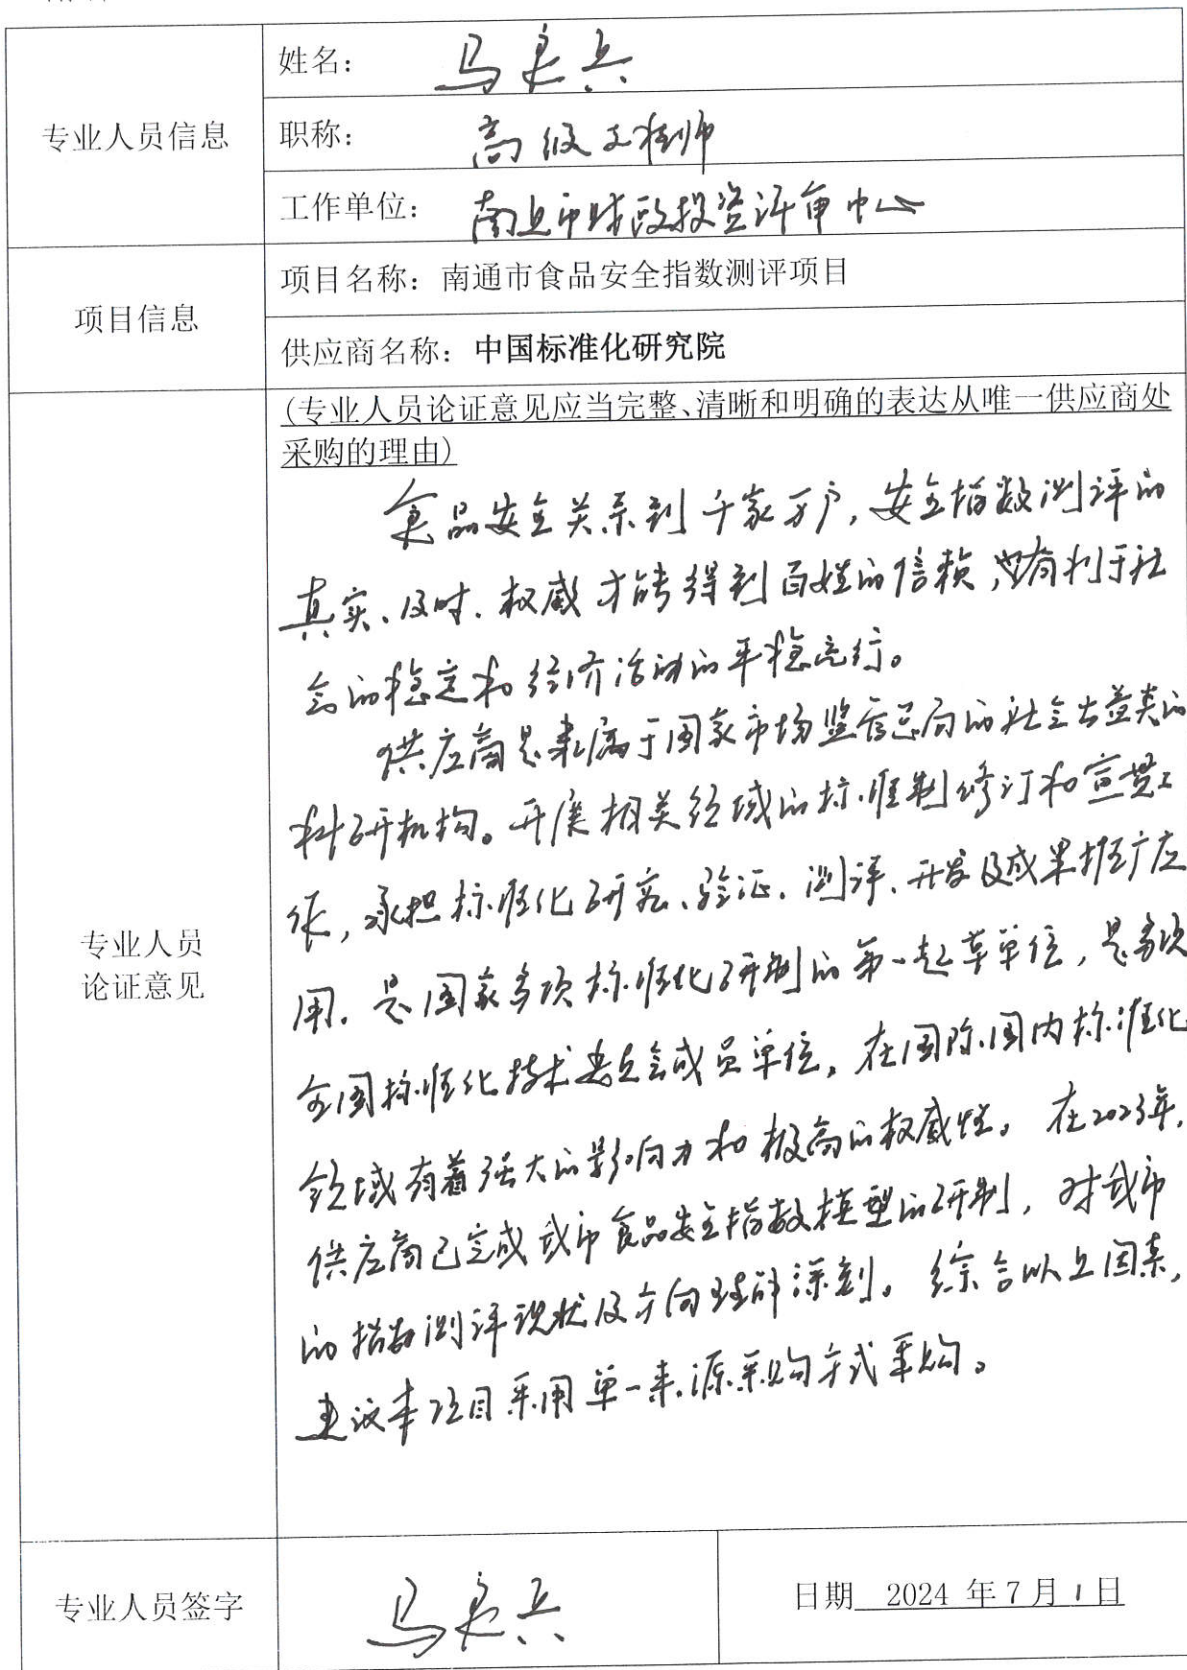 专业人员信息
姓名：
马 兵
职称：
高级工程师
工作单位：
南通市财政投资评审中心
项目信息
项目名称：南通市食品安全指数测评项目
供应商名称：中国标准化研究院
专业人员
论证意见
(专业人员论证意见应当完整、清晰和明确的表达从唯一供应商处
采购的理由)
食品安全关系到千家万户,安全指数测评的
真实、及时、权威才能得到百姓的信赖,也有利于社
会的稳定和经济活动的平稳运行。
供应商是隶属于国家市场监管总局的社会公益类的
科研机构。开展相关领域的标准制修订和宣贯工
作,承担标准化研究、验证、测评、开发及成果推广应
用。是国家多项标准化研制的第一起草单位,是多项
全国标准化技术委员会成员单位。在国际、国内标准化
领域有着强大的影响力和极高的权威性。在2023年,
供应商已完成我市食品安全指数模型的研制,对我市
的指数测评现状及方向理解深刻。综合以上因素,
建议本项目采用单一来源采购方式采购。
专业人员签字
马 兵
日期 2024 年 7 月 1 日